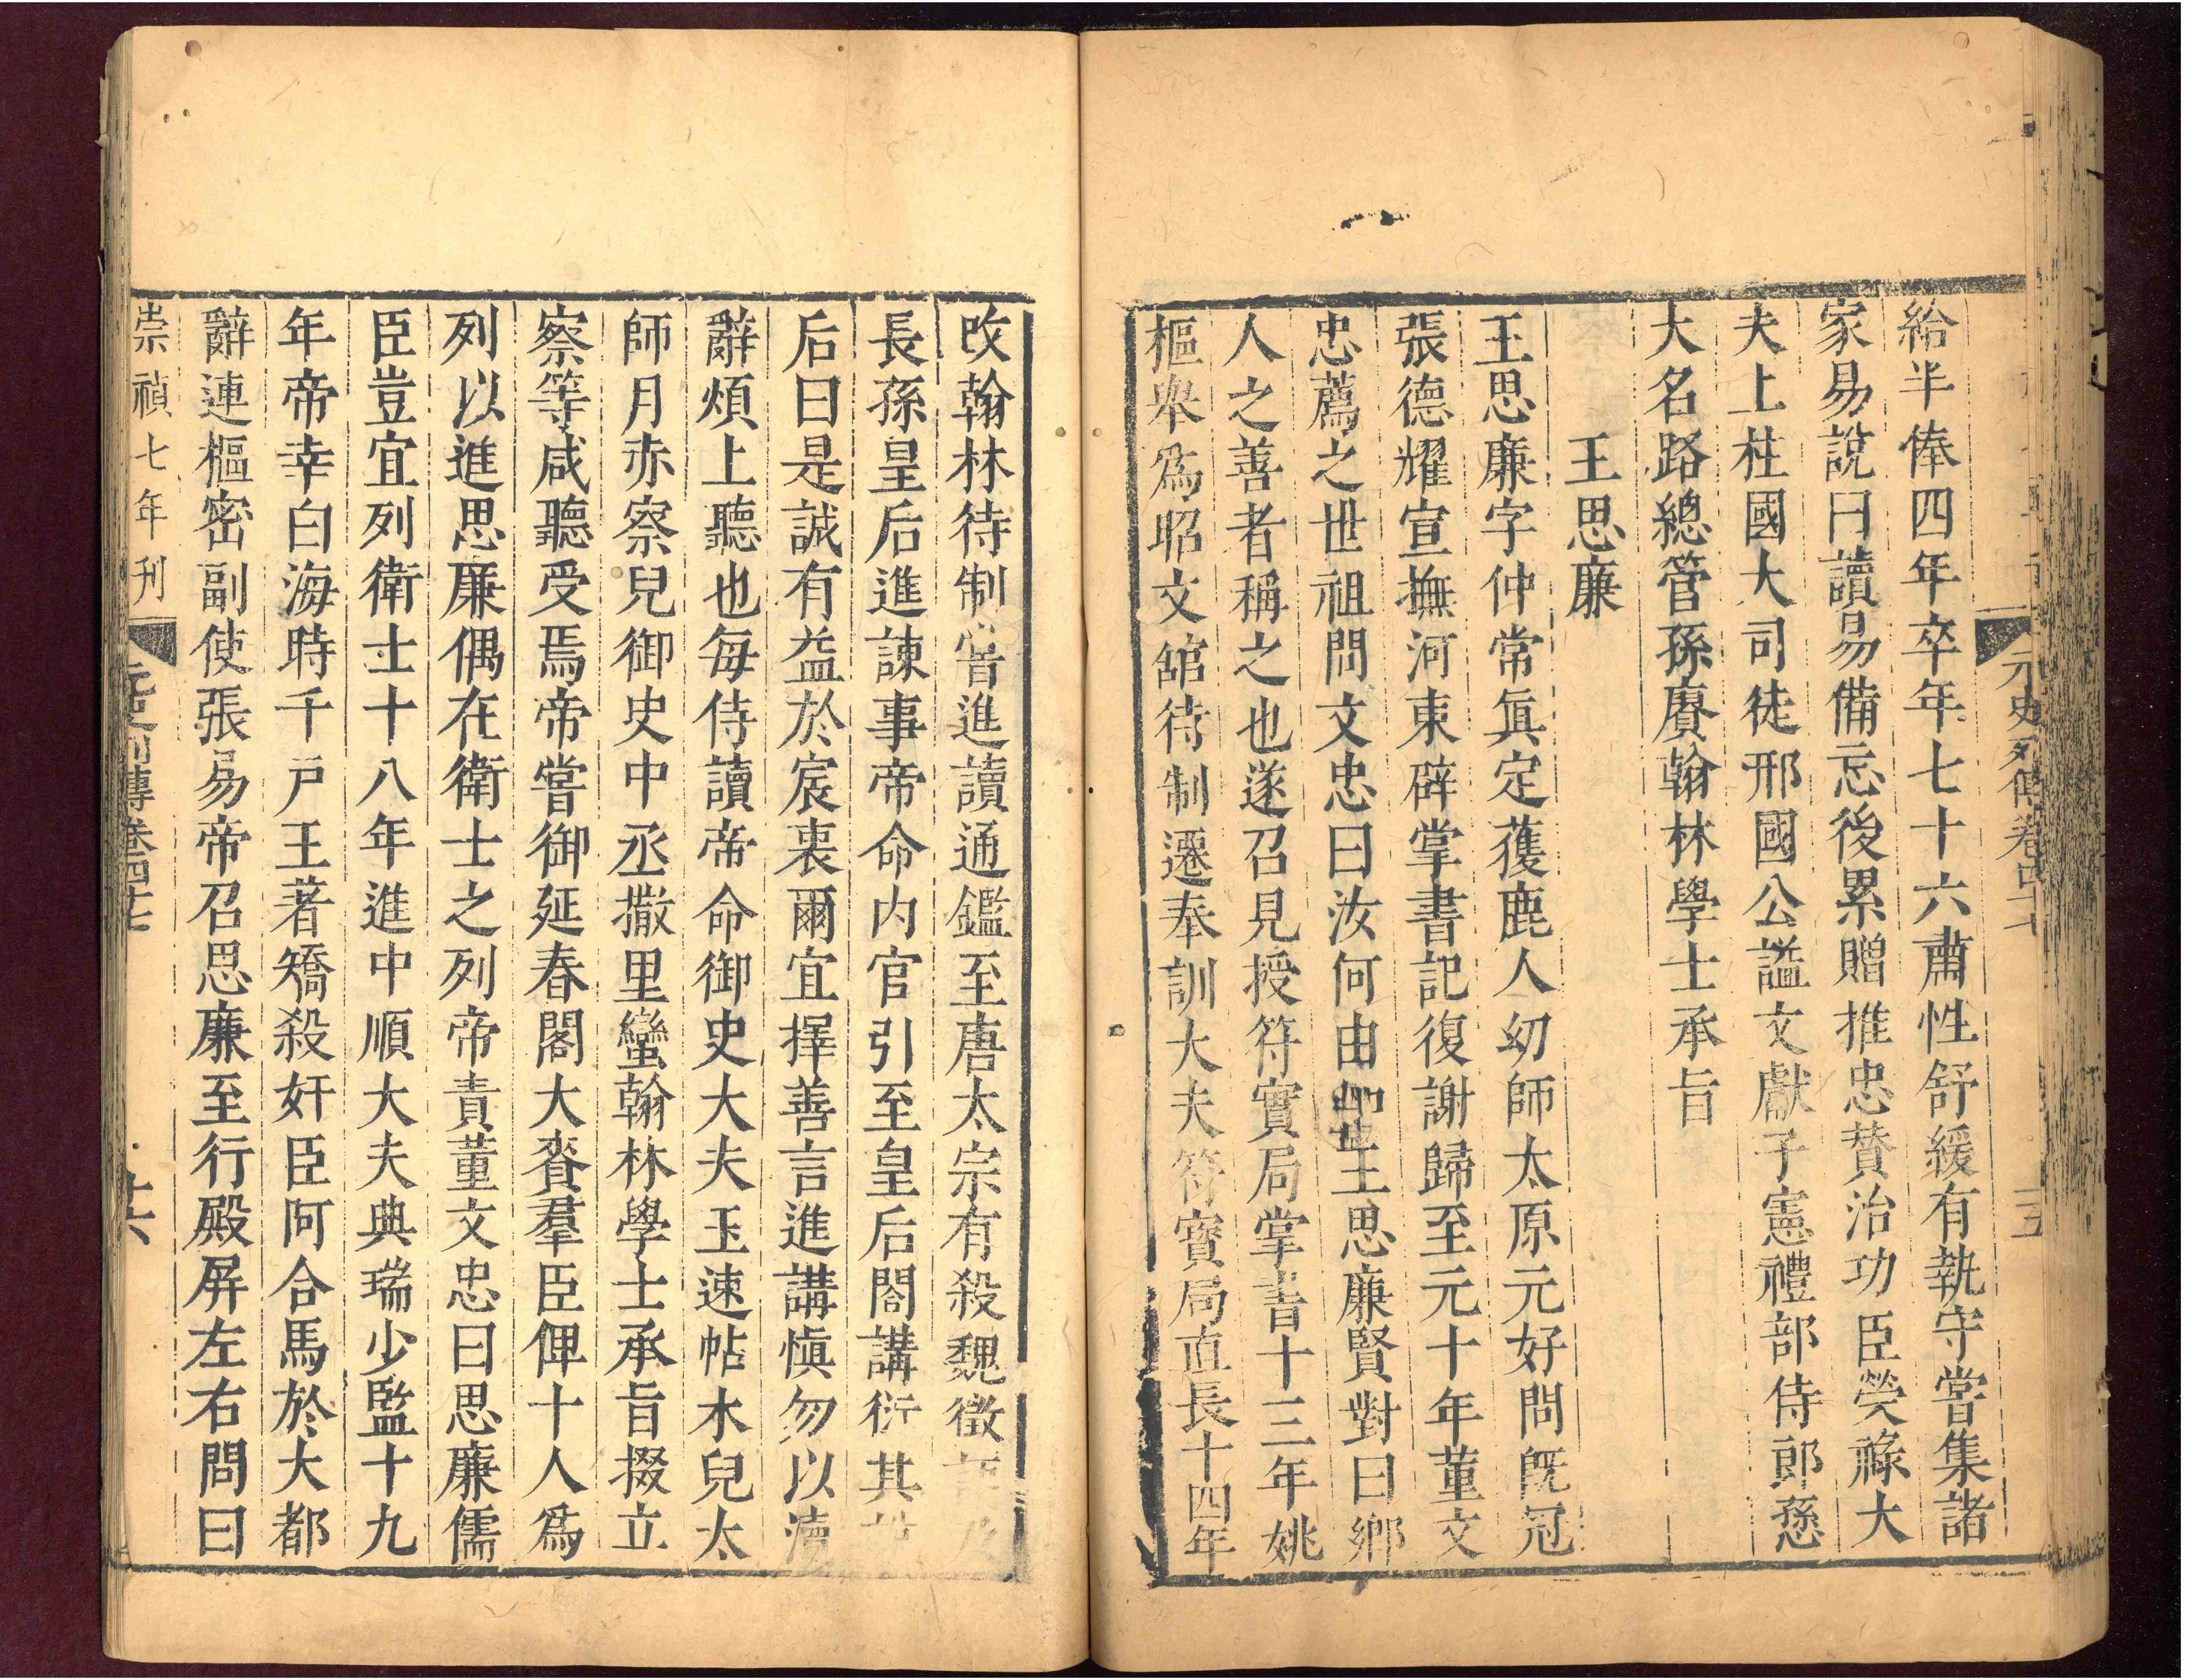 元史列傳卷四十七
給半俸四年卒年七十六肅性舒緩有執守嘗集諸
家易說曰讀易備忘後累贈推忠贊治功臣榮祿大
夫上柱國大司徒邢國公諡文獻子憲禮部侍郎愻
大名路總管孫賡翰林學士承旨
王思廉
王思廉字仲常眞定獲鹿人幼師太原元好問旣冠
張德耀宣撫河東辟掌書記復謝歸至元十年董文
忠薦之世祖問文忠曰汝何由知王思廉賢對曰鄉
人之善者稱之也遂召見授符寶局掌書十三年姚
樞舉爲昭文舘待制遷奉訓大夫符寶局直長十四年
改翰林待制嘗進讀通鑑至唐太宗有殺魏徵
長孫皇后進諫事帝命内官引至皇后閤講衍其
后曰是誠有益於宸衷爾宜擇善言進講愼勿以凟
辭煩上聽也每侍讀帝命御史大夫玉速帖木兒太
師月赤察兒御史中丞撒里蠻翰林學士承旨掇立
察等咸聽受焉帝嘗御延春閣大賚羣臣俾十人爲
列以進思廉偶在衛士之列帝責董文忠曰思廉儒
臣豈宜列衛士十八年進中順大夫典瑞少監十九
年帝幸白海時千戸王著矯殺奸臣阿合馬於大都
辭連樞密副使張易帝召思廉至行殿屏左右問曰
崇禎七年刊
元史列傳卷四十七
十六